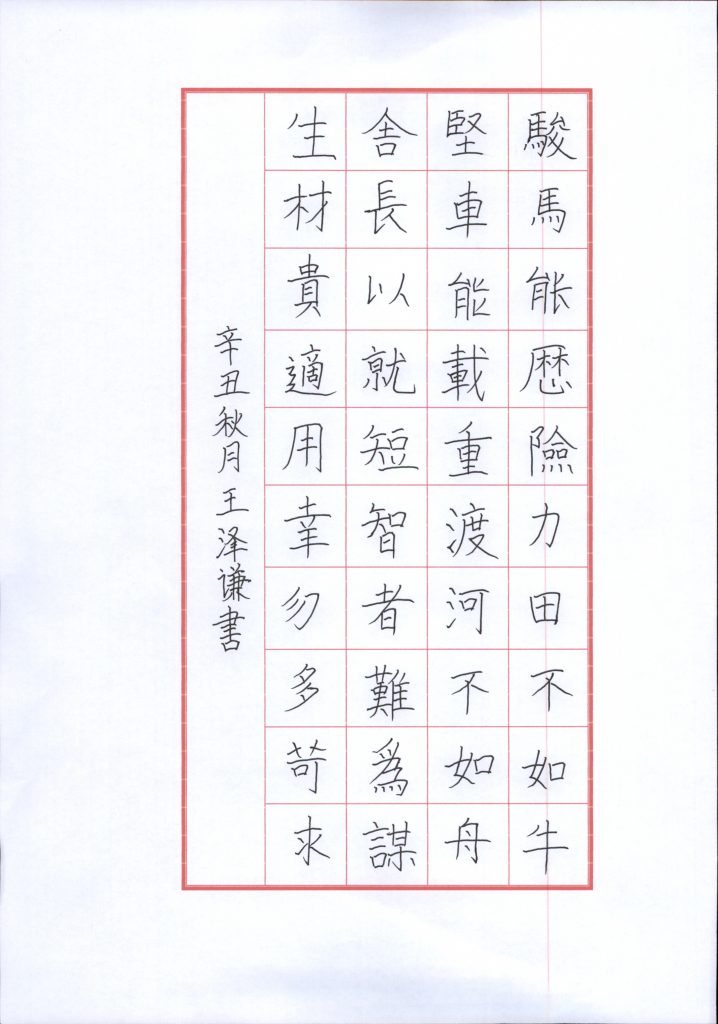 駿馬能歷險力田不如牛
堅車能載重渡河不如舟
舍長以就短智者難為謀
生材貴適用幸勿多苛求
辛丑秋月王泽谦書